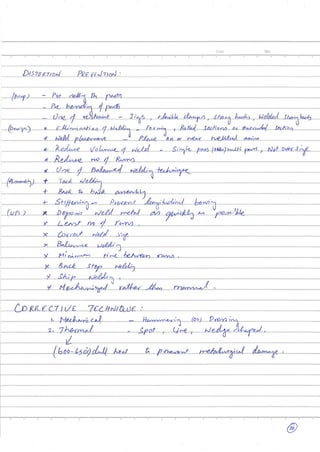 DISTORTION PREVENTION :
(Prep) - Pre setting the parts
- Pre bending of parts
- Use of restraint - Jigs, flexible clamps, strong backs, Welded strong backs
(Design) × Elimination of Welding - Forming, Rolled sections or Extruded section
× Weld placement - Place on or near neutral axis
× Reduce Volume of weld - Single pass multi pass, Not Over size
× Reduce no of Runs
× Use of Balanced welding technique
(Assembly) + Tack welding
+ Back to back assembly
+ Stiffening - Prevent longitudinal bowing
× Deposit weld metal as quickly as possible
× Least no of runs.
× Correct weld size
× Balance welding
× Minimum time between runs.
× Back step welding
× Skip welding.
× Mechanized rather than manual.
CORRECTIVE TECHNIQUE :
1. Mechanical - Hammering (or) Pressing
2. Thermal - Spot, Line, wedge shaped.
(600-650) dull heat to prevent metallurgical damage.